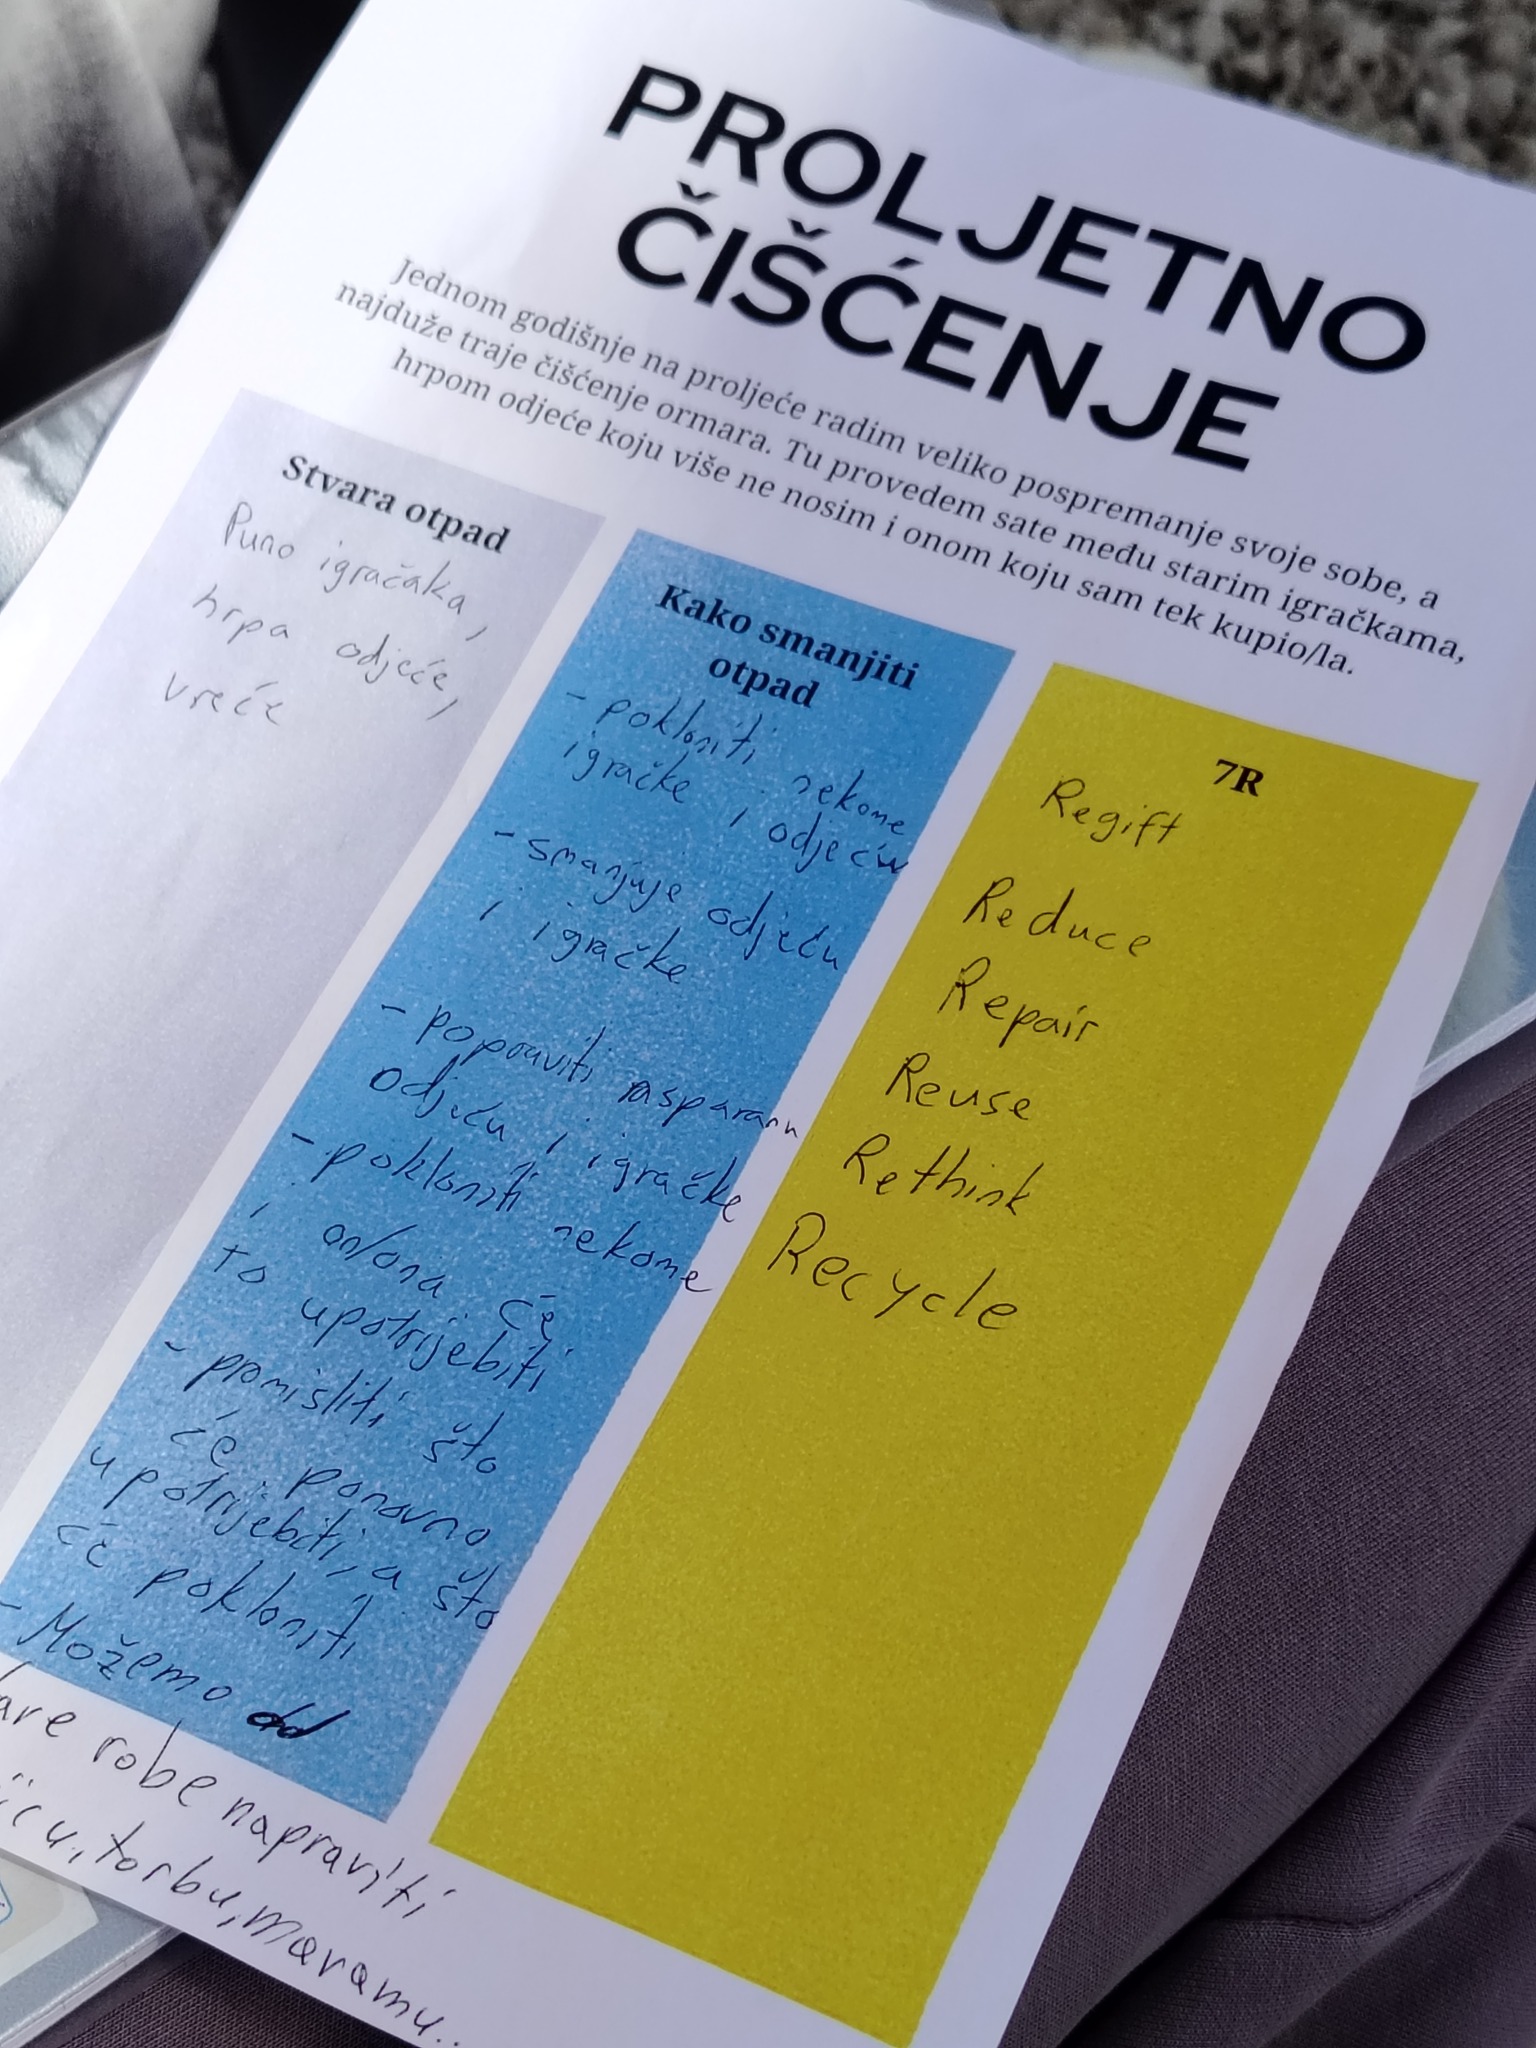 PROLJETNO
ČIŠĆENJE
Jednom godišnje na proljeće radim veliko pospremanje svoje sobe, a
najduže traje čišćenje ormara. Tu provedem sate među starim igračkama,
hrpom odjeće koju više ne nosim i onom koju sam tek kupio/la.
Stvara otpad
Puno igračaka,
hrpa odjeće,
vreće
Kako smanjiti
otpad
- pokloniti nekome
igračke i odjeću
- smanjuje odjeću
i igračke
- popraviti rasparanu
odjeću i igračke
- pokloniti nekome
i on/ona će
to upotrijebiti
- promisliti što
će ponovno
upotrijebiti, a što
će pokloniti
- Možemo od
robe napraviti
torbu, maramu..
7R
Regift
Reduce
Repair
Reuse
Rethink
Recycle